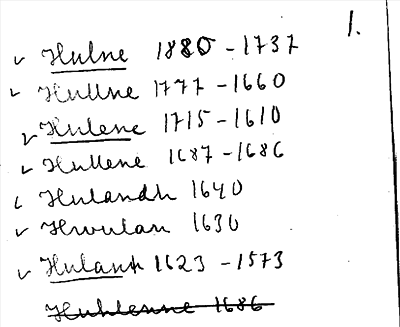 1.
✓ Hulne 1880 - 1737
✓ Hullne 1777 - 1660
✓ Hulene 1715 - 1610
✓ Hullene 1687 - 1686
✓ Hulandh 1640
✓ Hwulan 1630
✓ 1623 - 1573
Huhlenne 1686